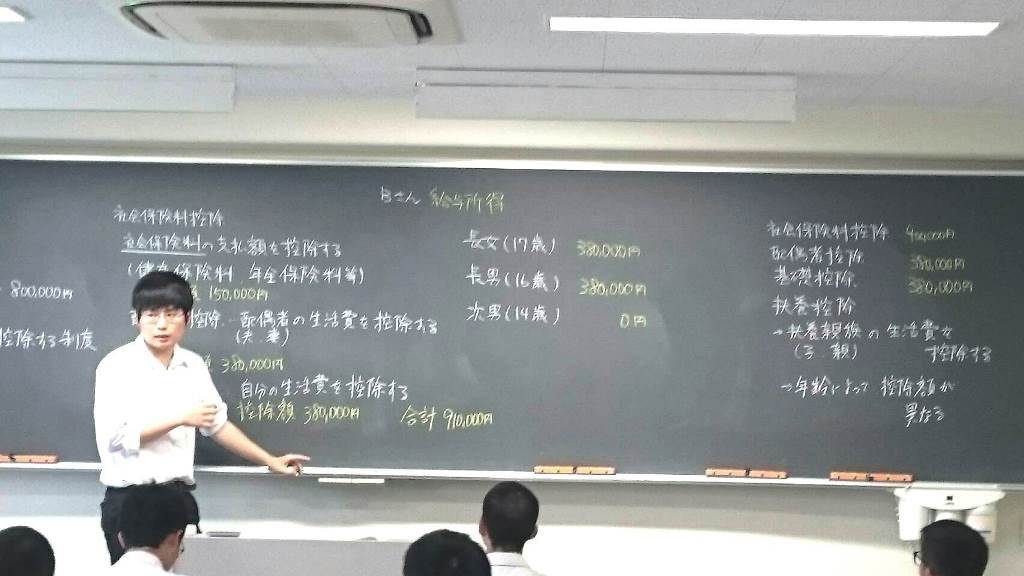 800,000円
控除する制度
社会保険料控除
社会保険料の支払額を控除する
保険料 年金保険料等)
150,000円
控除 - 配偶者の生活費を控除する
(夫.妻)
380,000円
自分の生活費を控除する
控除額 380,000円 合計 910,000円
Bさん 給与所得
長女(17歳) 380,000円
長男(16歳) 380,000円
次男(14歳) 0円
社会保険料控除 400,000円
配偶者控除 380,000円
基礎控除 380,000円
扶養控除
→扶養親族の生活費を
(子.親) 控除する
→年齢によって 控除額が
異なる